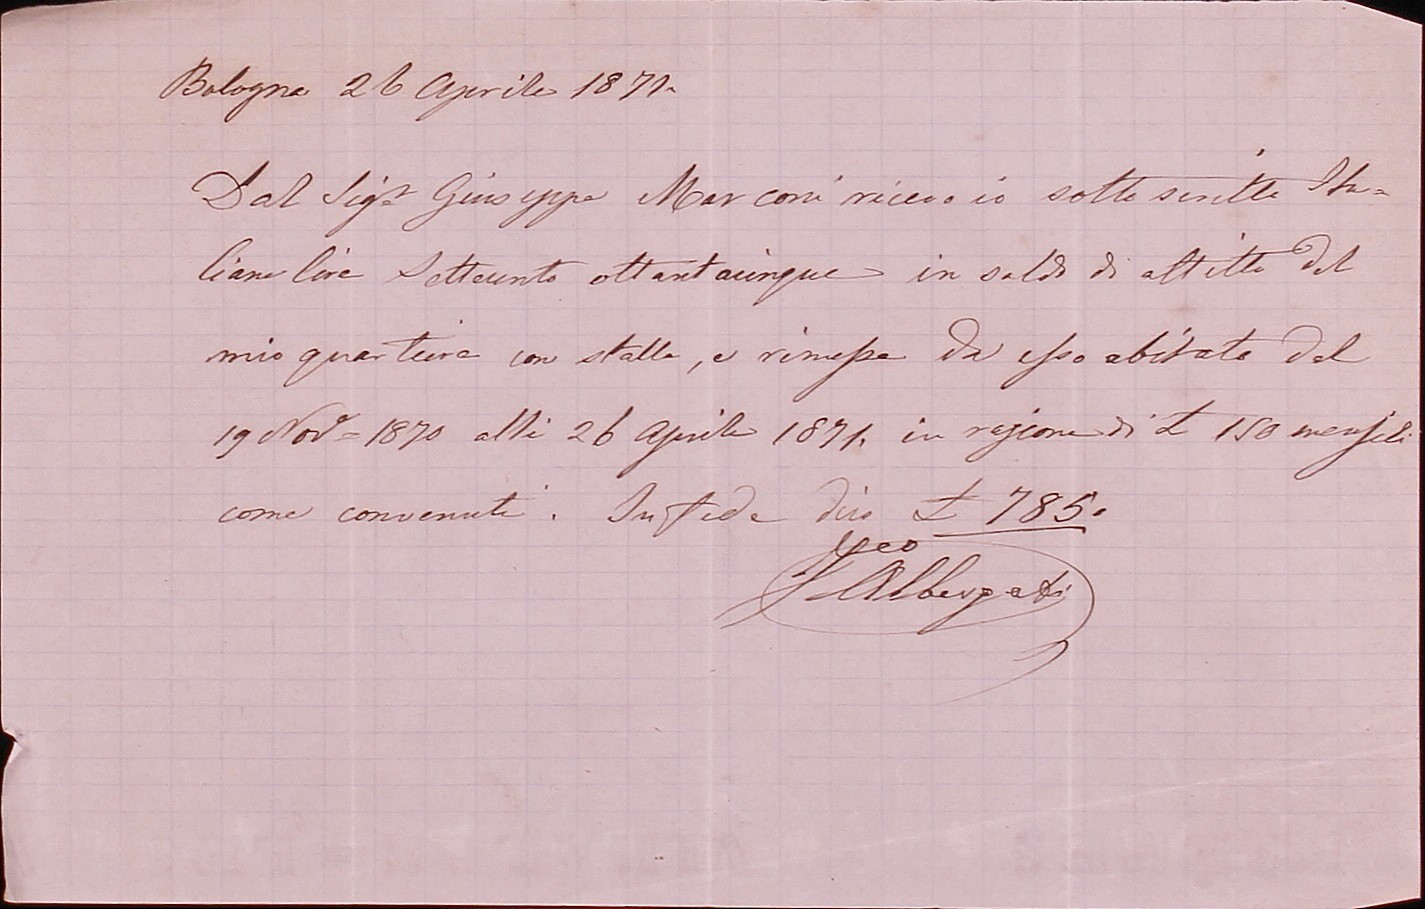 Bologna 26 Aprile 1871.
Dal Sigr Giuseppe Marconi ricevo io sottoscritto Ita=
liane lire Settecento ottantacinque in saldo di affitto del
mio quartiere con stalla, e rimessa da esso abitato dal
19 Nove= 1870 alli 26 Aprile 1871. in ragione di £ 150 mensili
come convenuti. In fede dico £ 785.
F Albergati